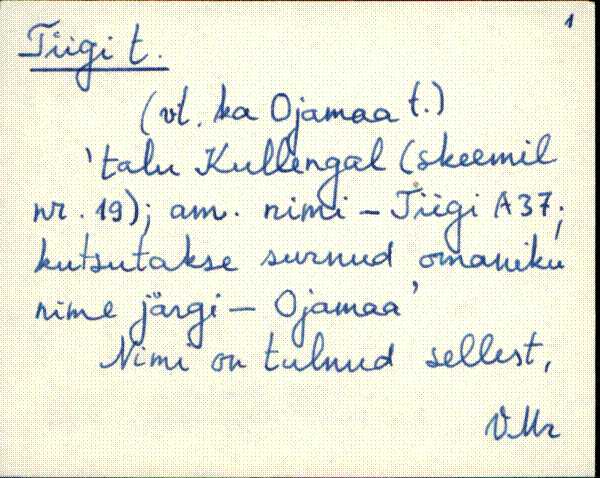 1
Tiigi t.
(vt. ka Ojamaa t.)
'talu Kullengal (skeemil
nr. 19); am. nimi – Tiigi A37;
kutsutakse surnud omaniku
nime järgi – Ojamaa'
Nimi on tulnud sellest,
VMr